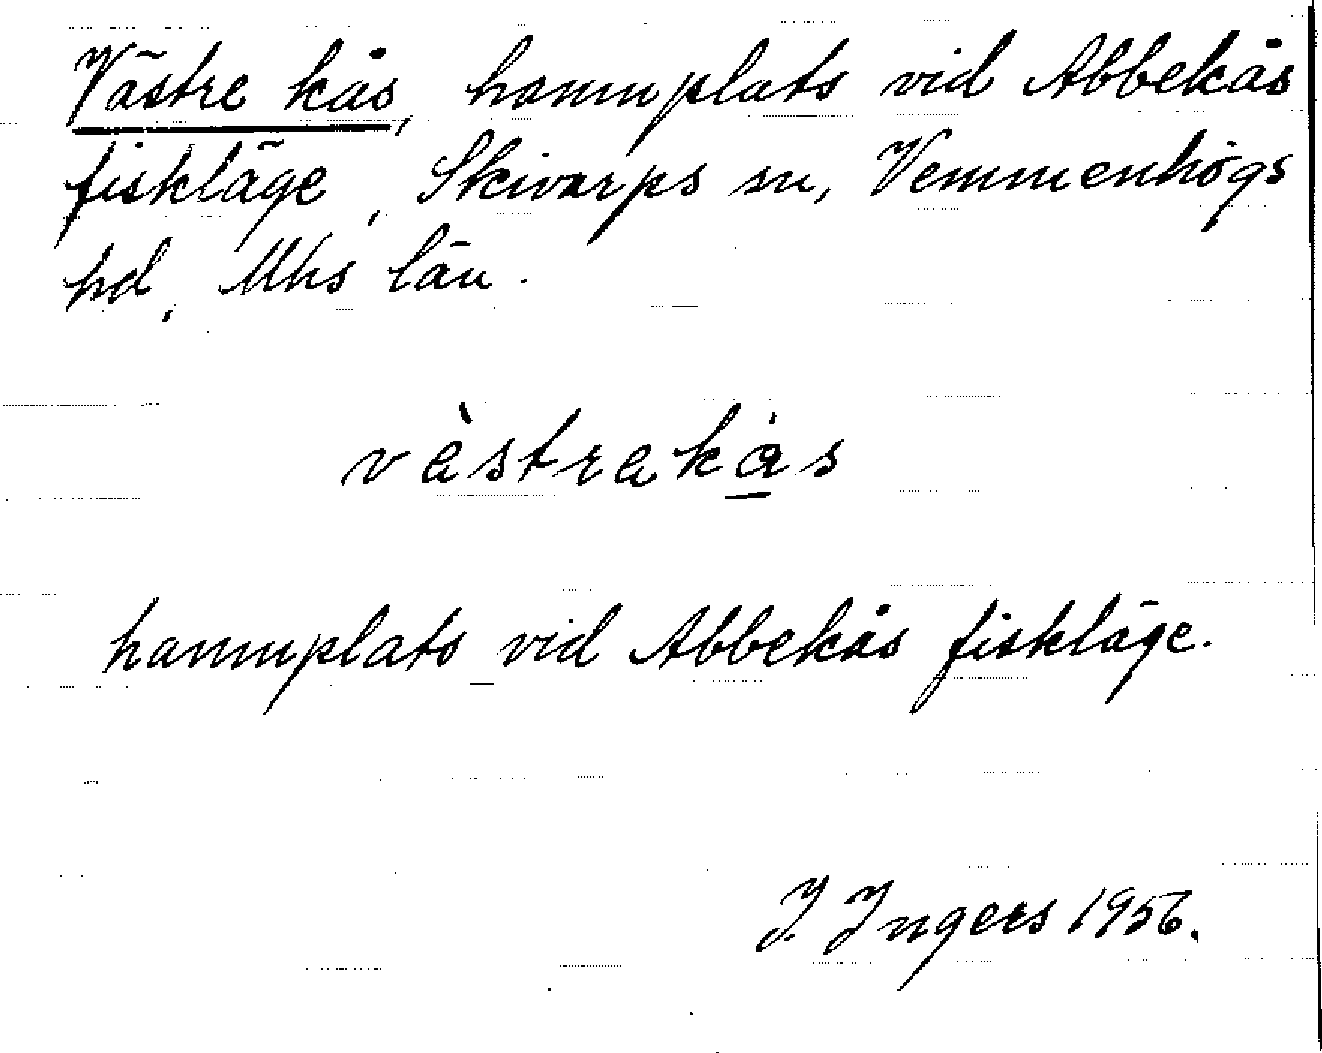 Västre kås, hamnplats vid Abbekås
fiskläge, Skivarps sn, Vemmenhögs
hd, Mhs län.
vàstrakås
hamnplats vid Abbekås fiskläge.
I. Ingers 1956.